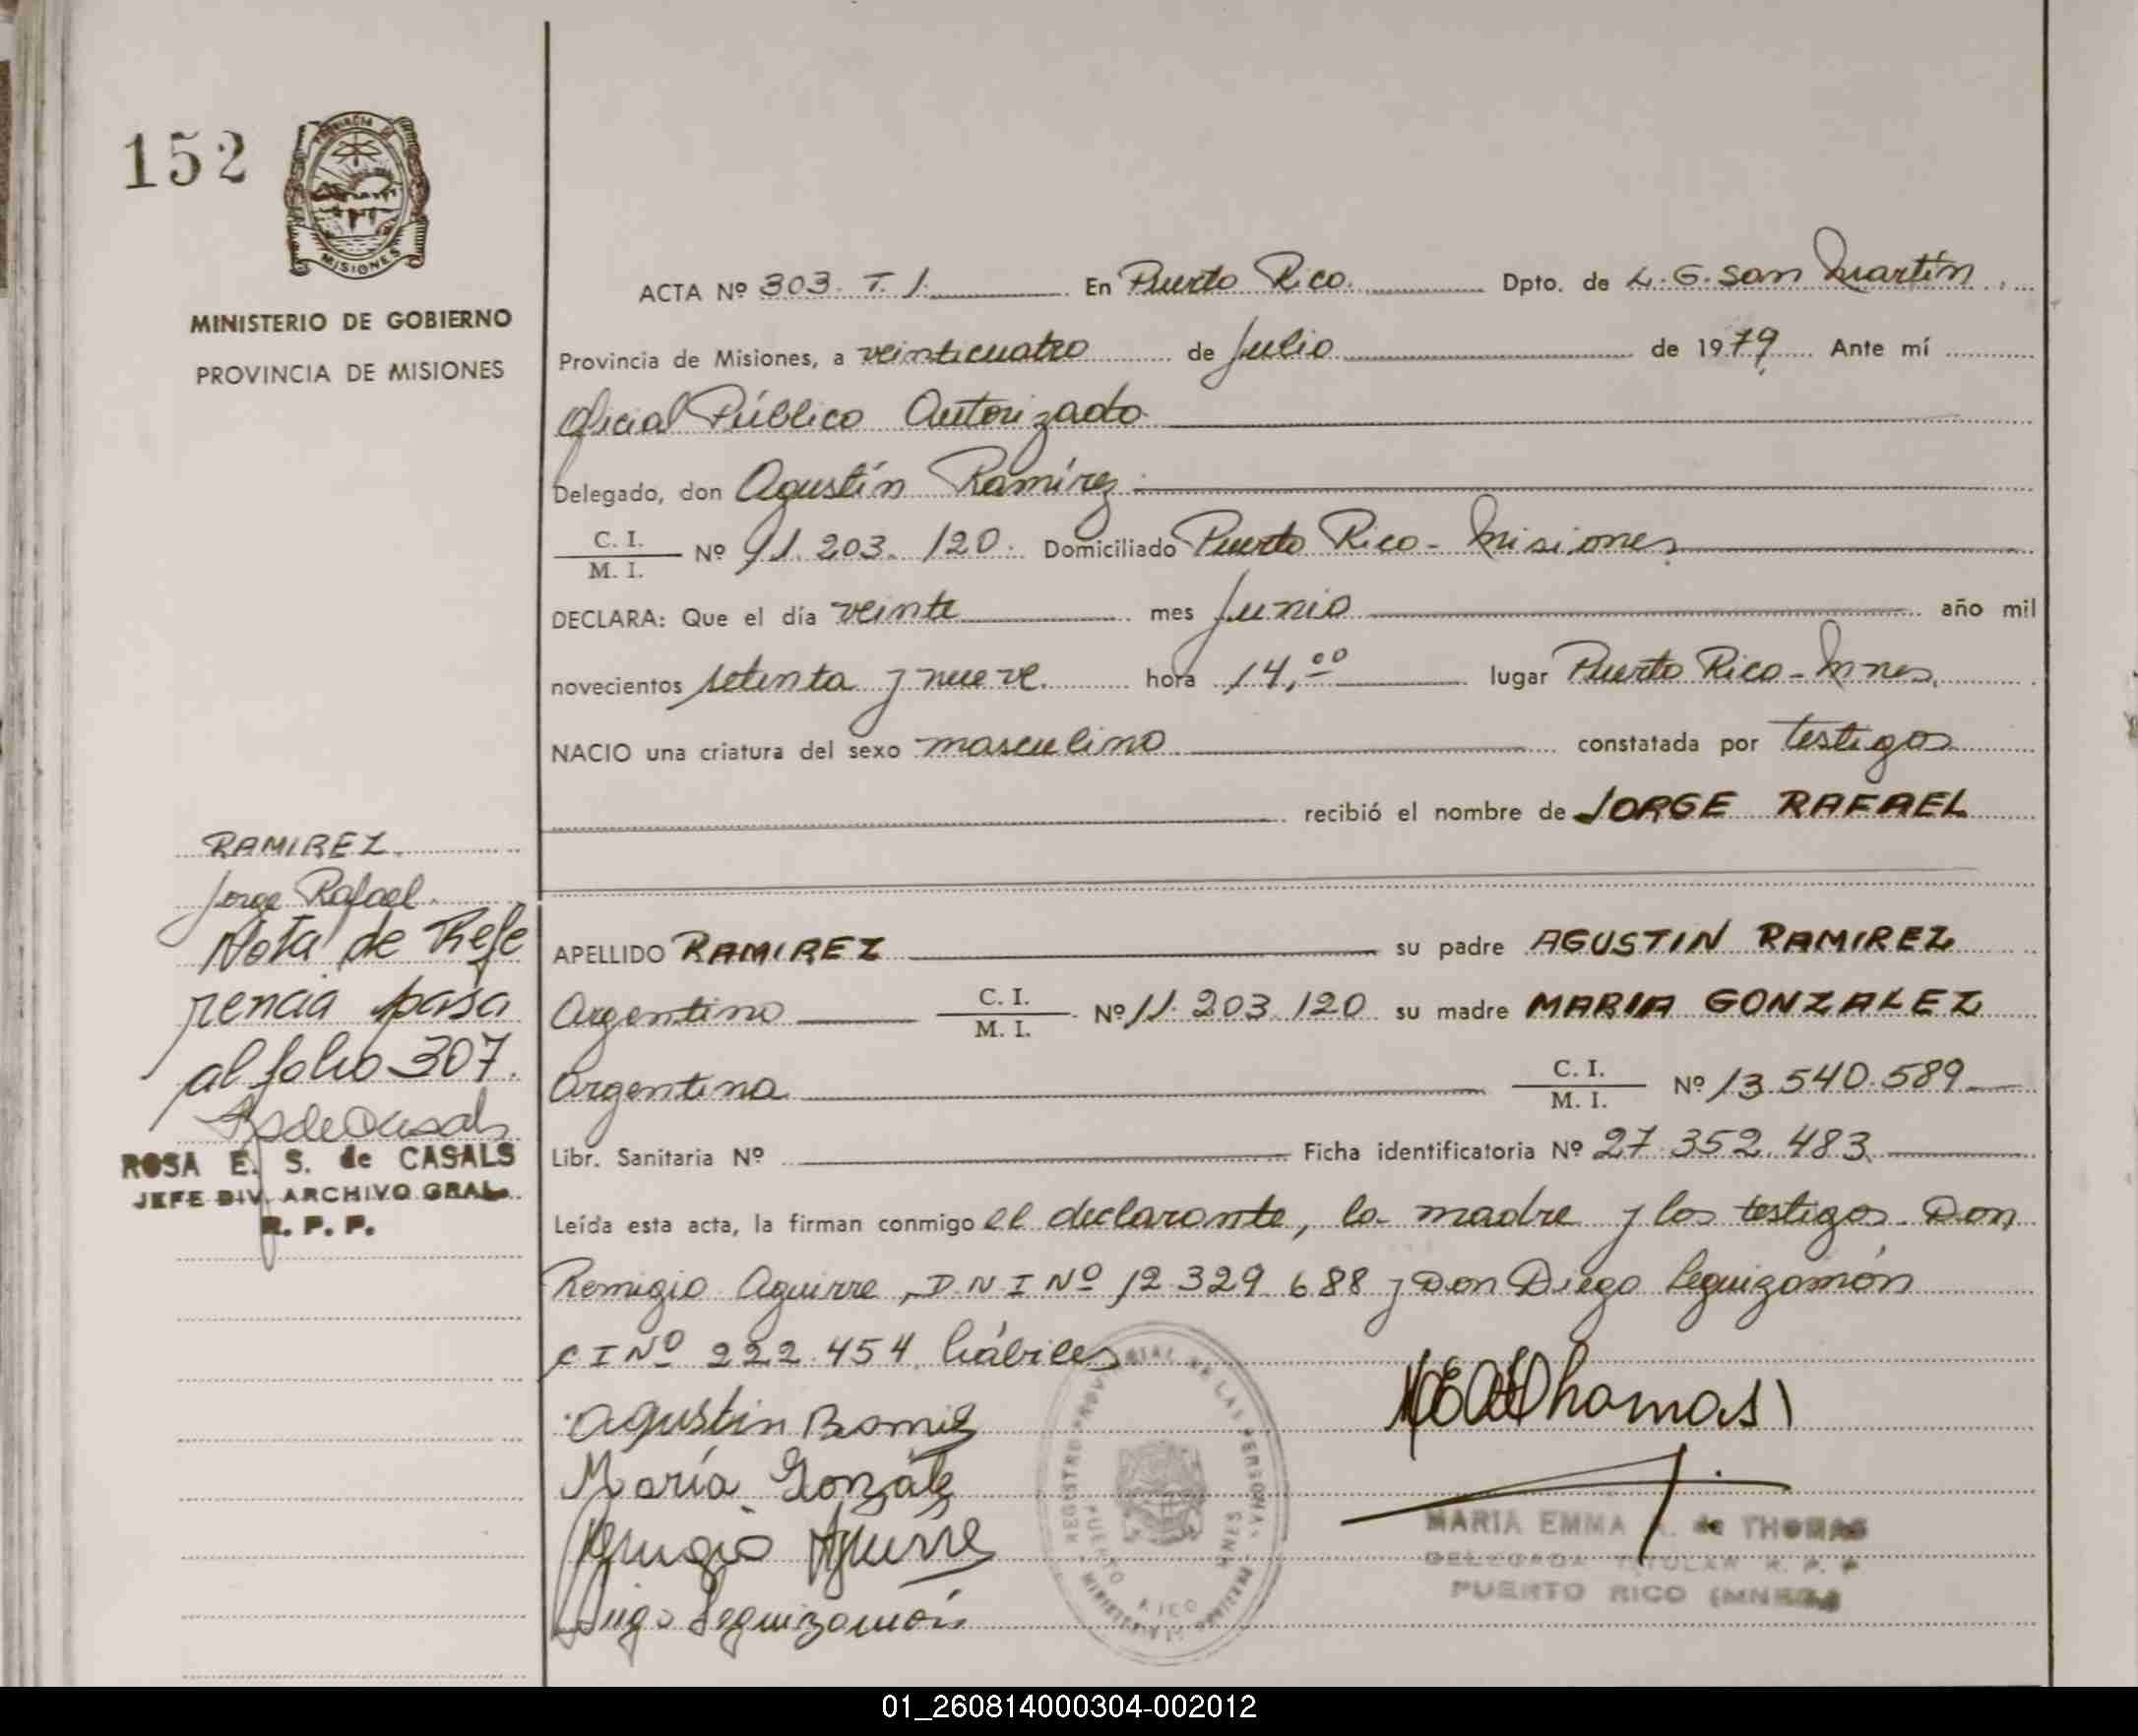 152
PROVINCIA DE
MISIONES
MINISTERIO DE GOBIERNO
PROVINCIA DE MISIONES
ACTA Nº 303. T. I. En Puerto Rico. Dpto. de L. G. San Martín
Provincia de Misiones, a veinticuatro de Julio de 1979. Ante mí
Oficial Público Autorizado
Delegado, don Agustín Ramírez
C. I. / M. I. Nº 11.203.120. Domiciliado Puerto Rico - Misiones
DECLARA: Que el día veinte mes Junio año mil
novecientos setenta y nueve. hora 14,00 lugar Puerto Rico - Mnes.
NACIO una criatura del sexo masculino constatada por testigos
recibió el nombre de JORGE RAFAEL
APELLIDO RAMIREZ su padre AGUSTIN RAMIREZ
Argentino C. I. / M. I. Nº 11.203.120 su madre MARIA GONZALEZ
Argentina C. I. / M. I. Nº 13.540.589
Libr. Sanitaria Nº Ficha identificatoria Nº 27.352.483
Leída esta acta, la firman conmigo el declarante, la madre y los testigos Don
Remigio Aguirre, D.N.I Nº 12.329.688 y Don Diego Leguizamón
C I Nº 222.454 hábiles
Agustin Ramirez
María González
Remigio Aguirre
Diego Leguizamón
REGISTRO PROVINCIAL DE LAS PERSONAS
PUERTO RICO MNES
MARIA EMMA A. de THOMAS
DELEGADA TITULAR R. P. P.
PUERTO RICO (MNES.)
RAMIREZ
Jorge Rafael.
Nota de Refe
rencia pasa
al folio 307.
ROSA E. S. de CASALS
JEFE DIV. ARCHIVO GRAL.
R. P. P.
01_260814000304-002012